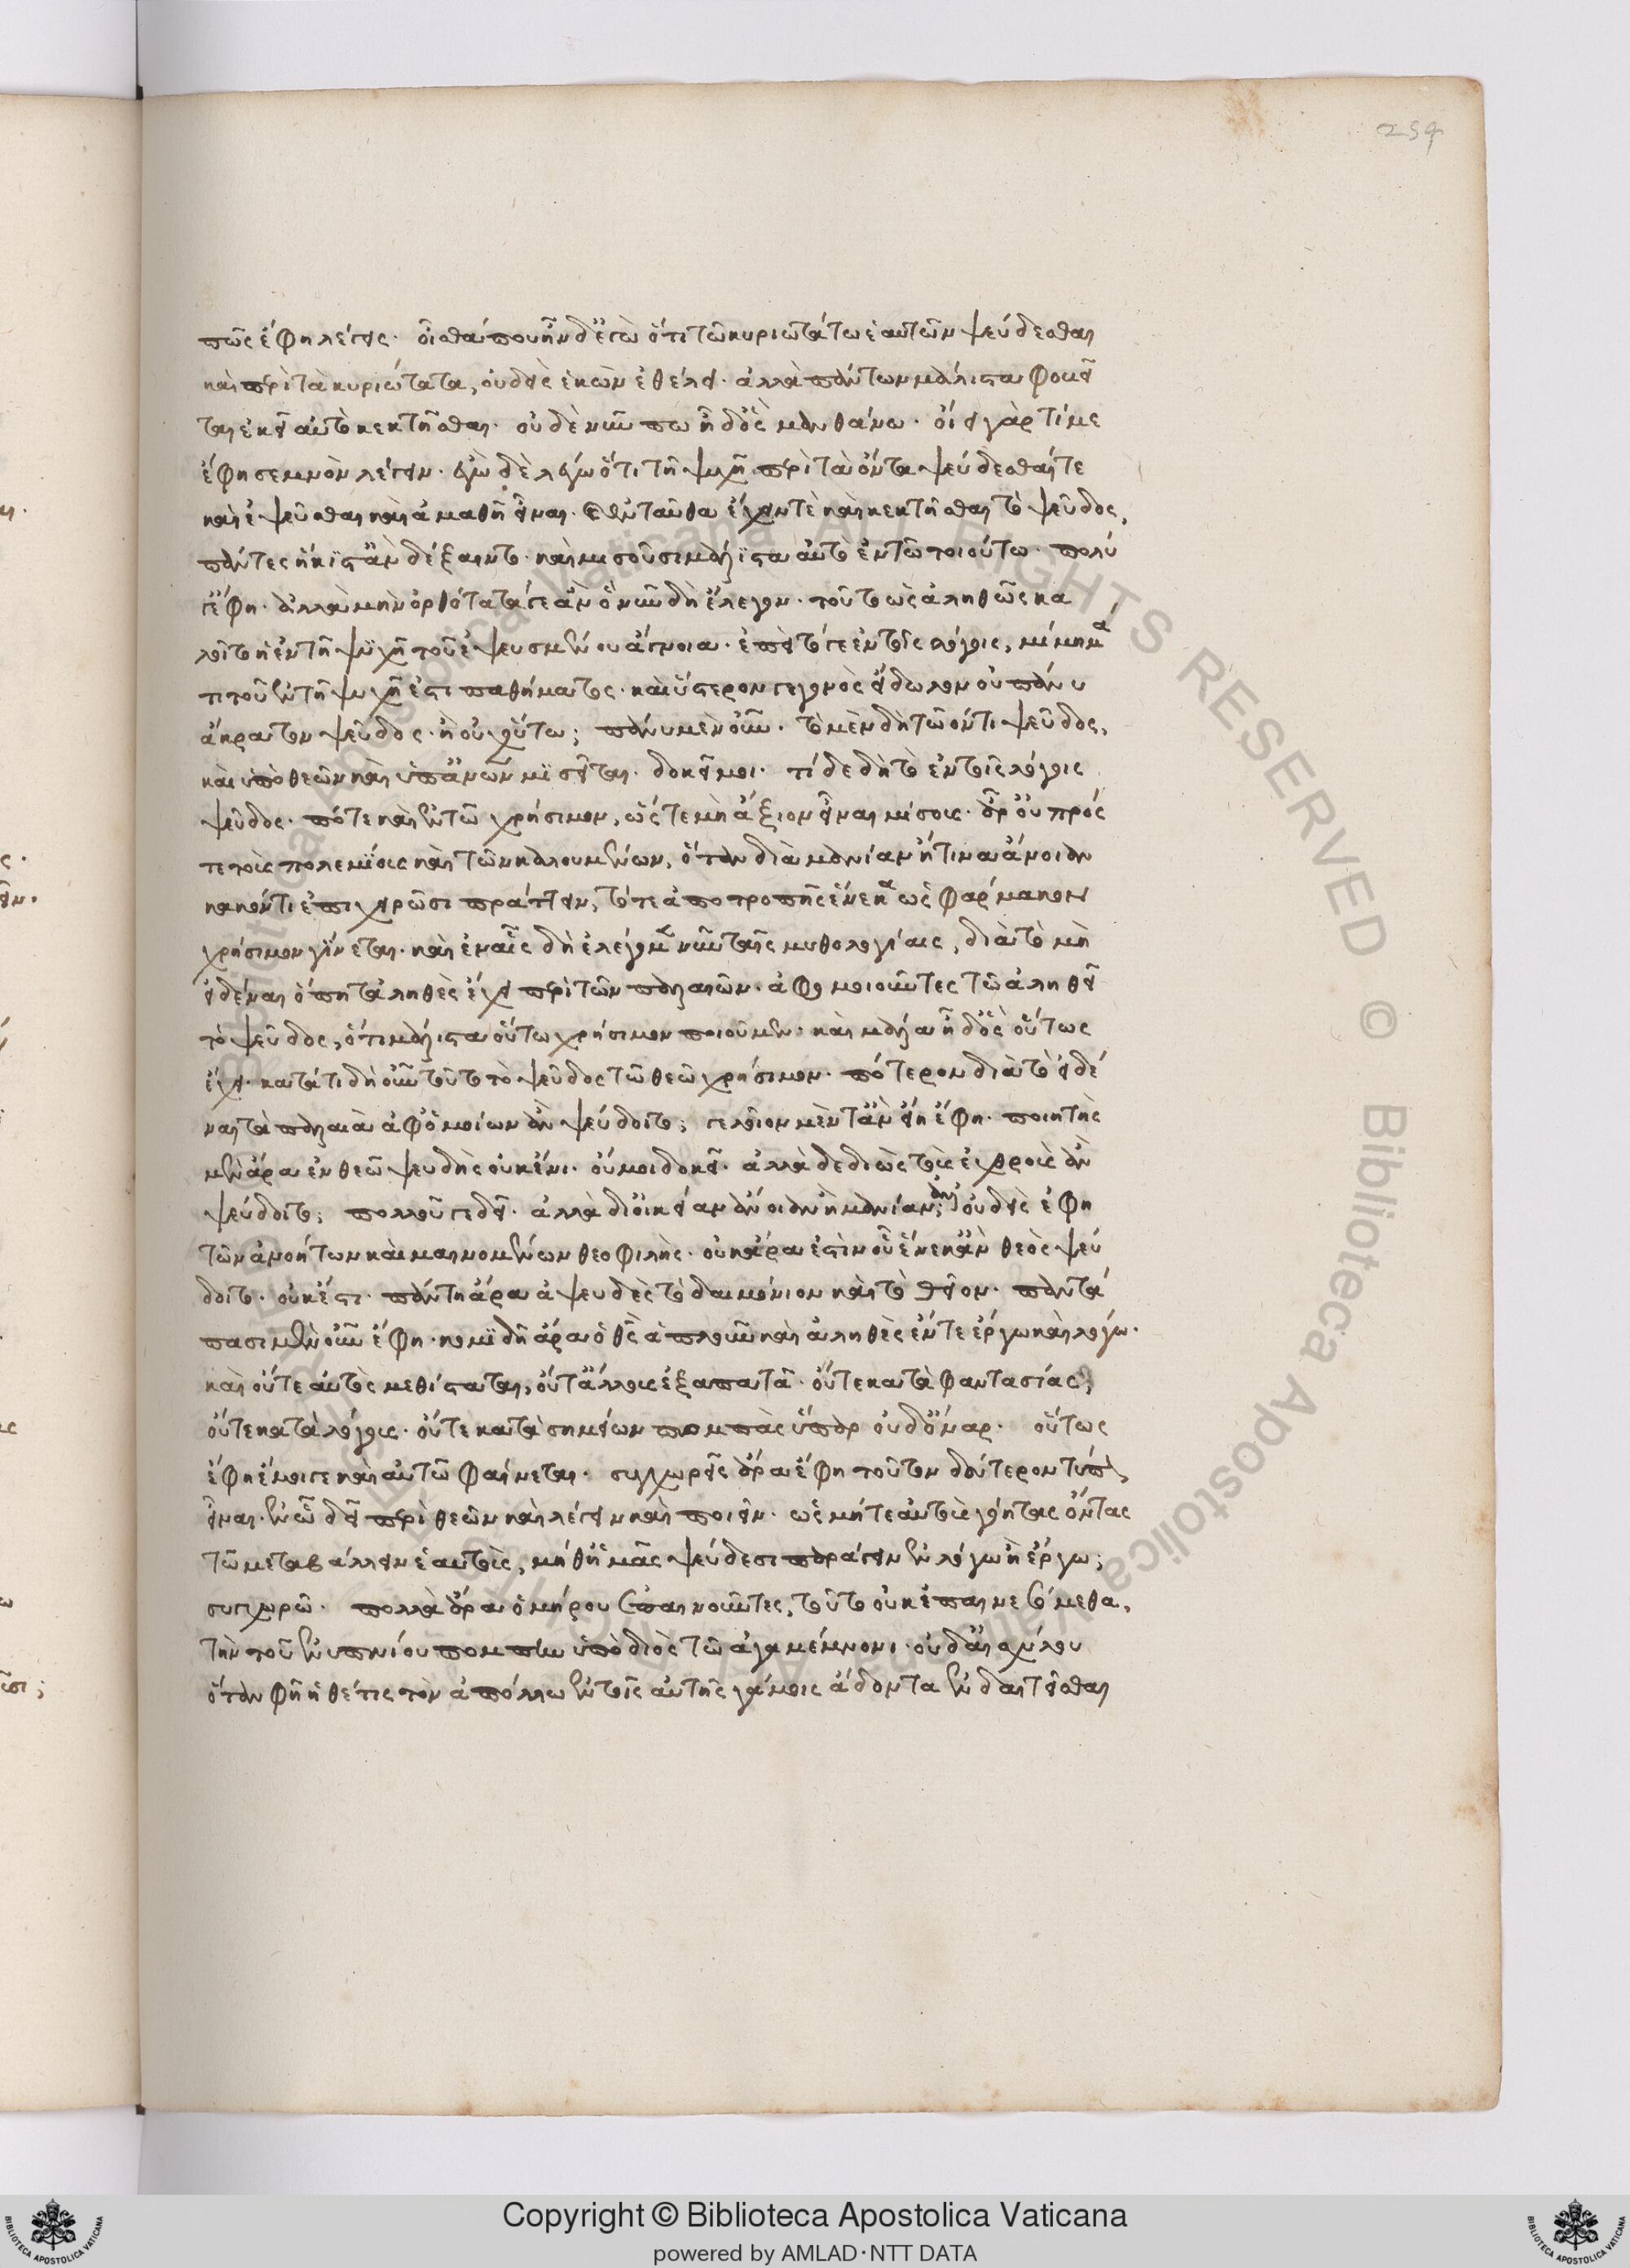 259
πῶς ἔφη λέγεις· οἶσθά που ἦν δ' ἐγὼ ὅτι τῷ κυριωτάτῳ ἑαυτῶν ψεύδεσθαι
καὶ περὶ τὰ κυριώτατα, οὐδεὶς ἑκὼν ἐθέλει· ἀλλὰ πάντων μάλιστα φοβεῖ
ται ἐκεῖ αὐτὸ κεκτῆσθαι· οὐδὲ νῦν πω ἦ δ' ὃς μανθάνω· οἴει γάρ τί με
ἔφη σεμνὸν λέγειν· ἐγὼ δὲ λέγω ὅτι τῇ ψυχῇ περὶ τὰ ὄντα ψεύδεσθαί τε
καὶ ἐψεῦσθαι καὶ ἀμαθῆ εἶναι· καὶ ἐνταῦθα ἔχειν τὲ καὶ κεκτῆσθαι τὸ ψεῦδος,
πάντες ἥκιστ' ἂν δέξαιντο· καὶ μισοῦσι μάλιστα αὐτὸ ἐν τῷ τοιούτῳ· πολύ
γ' ἔφη· ἀλλὰ μὴν ὀρθότατά γ' ἂν ὃ νῦν δὴ ἔλεγον· τοῦτο ὡς ἀληθῶς κα
λοῖτο ἡ ἐν τῇ ψυχῇ τοῦ ἐψευσμένου ἄγνοια· ἐπεὶ τό γε ἐν τοῖς λόγοις, μίμημα
τι τοῦ ἐν τῇ ψυχῇ ἐστι παθήματος· καὶ ὕστερον γεγονὸς εἴδωλον οὐ πάνυ
ἄκρατον ψεῦδος· ἢ οὐχ οὕτω; πάνυ μὲν οὖν· τὸ μὲν δὴ τῷ ὄντι ψεῦδος,
καὶ ὑπὸ θεῶν καὶ ὑπ' ἀνων μισεῖται· δοκεῖ μοι· τί δε δὴ τὸ ἐν τοῖς λόγοις
ψεῦδος· πότε καὶ ἐν τῷ χρήσιμον, ὥστε μὴ ἄξιον εἶναι μίσους· ἆρ' οὐ πρός
τε τοὺς πολεμίους καὶ τῶν καλουμένων, ὅταν διὰ μανίαν ἤ τινα ἄνοιαν
κακόν τι ἐπιχειρῶσι πράττειν, τότε ἀποτροπῆς ἕνεκα ὡς φάρμακον
χρήσιμον γίνεται· καὶ ἐν αἷς δὴ ἐλέγομεν νῦν ταῖς μυθολογίαις, διὰ τὸ μὴ
εἰδέναι ὅπη τἀληθὲς ἔχει περὶ τῶν παλαιῶν· ἀφομοιοῦντες τῷ ἀληθεῖ
τὸ ψεῦδος, ὅτι μάλιστα οὕτω χρήσιμον ποιοῦμεν· καὶ μάλα ἦ δ' ὃς οὕτως
ἔχει· κατὰ τί δὴ οὖν τοῦτο τὸ ψεῦδος τῷ θεῷ χρήσιμον· πότερον διὰ τὸ εἰδέ
ναι τὰ παλαιὰ ἀφομοίων ἂν ψεύδοιτο; γελοῖον μὲντ' ἂν εἴη ἔφη· ποιητὴς
μὲν ἄρα ἐν θεῷ ψευδὴς οὐκ ἔνι· οὔ μοι δοκεῖ· ἀλλὰ δεδιὼς τοὺς ἐχθροὺς ἂν
ψεύδοιτο; πολλοῦ γε δεῖ· ἀλλὰ δι' οἰκείων ἄνοιαν ἢ μανίαν; ἀλλ' οὐδεὶς ἔφη
τῶν ἀνοήτων καὶ μαινομένων θεοφιλής· οὐκ ἄρα ἐστὶν οὗ ἕνεκ' ἂν θεὸς ψεύ
δοιτο· οὐκ ἔστι· πάντῃ ἄρα ἀψευδὲς τὸ δαιμόνιον καὶ τὸ θεῖον· παντά
πασι μὲν οὖν ἔφη· κομιδῇ ἄρα ὁ θεὸς ἁπλοῦν καὶ ἀληθὲς ἔν τε ἔργῳ καὶ λόγῳ·
καὶ οὔτε αὐτὸς μεθίσταται, οὔτ' ἄλλους ἐξαπατᾷ· οὔτε κατὰ φαντασίας,
οὔτε κατὰ λόγους· οὔτε κατὰ σημείων πομπὰς ὕπαρ οὐδ' ὄναρ· οὕτως
ἔφη ἔμοιγε καὶ αὐτῷ φαίνεται· συγχωρεῖς ἄρα ἔφη τοῦτον δεύτερον τύπον
εἶναι· ἐν ᾧ δεῖ περὶ θεῶν καὶ λέγειν καὶ ποιεῖν· ὡς μήτε αὐτοὺς γόητας ὄντας
τῷ μεταβάλλειν ἑαυτοὺς, μήθ' ἡμᾶς ψεύδεσι παράγειν ἐν λόγῳ ἢ ἔργῳ;
συγχωρῶ· πολλὰ ἄρα ὁμήρου ἐπαινοῦντες, τοῦτο οὐκ ἐπαινεσόμεθα,
τὴν τοῦ ἐνυπνίου πομπὴν ὑπὸ διὸς τῷ ἀγαμέμνονι· οὐδ' αἰσχύλου
ὅταν φῇ ἡ θέτις τὸν ἀπόλλω ἐν τοῖς αὐτῆς γάμοις ᾄδοντα ἐνδατεῖσθαι
Copyright © Biblioteca Apostolica Vaticana
powered by AMLAD·NTT DATA